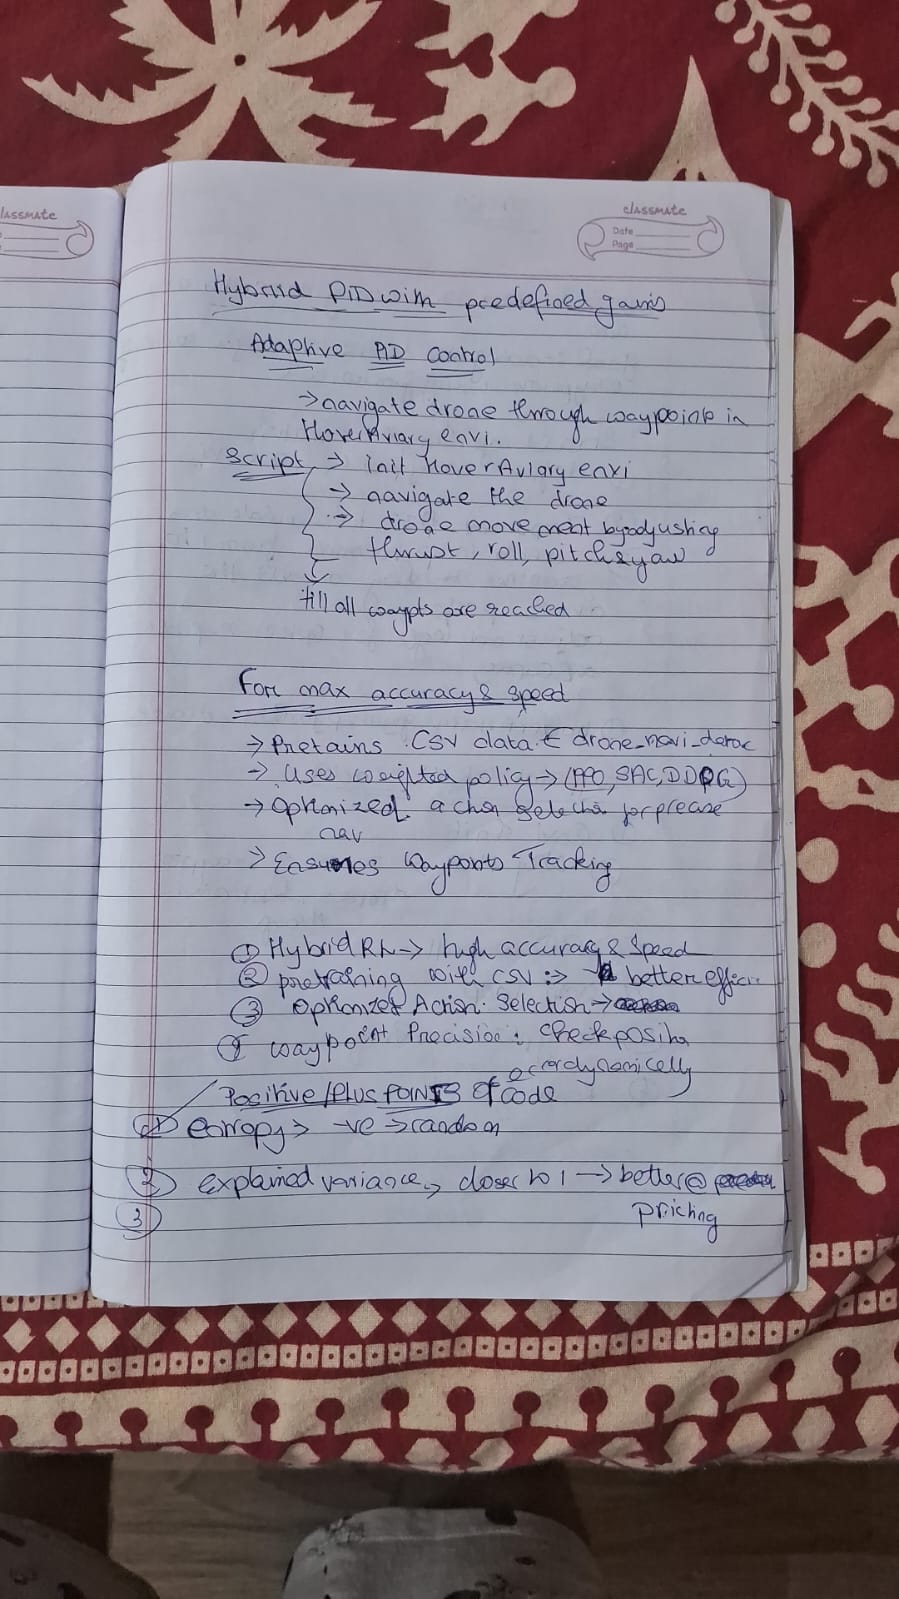 classmate
classmate
Date
Page
Hybrid PID with predefined gains
Adaptive PID Control
→ navigate drone through waypoints in
HoverAviary envi.
Script → init HoverAviary envi
→ navigate the drone
→ drone movement by adjusting
thrust, roll, pitch & yaw
till all waypts are reached
For max accuracy & speed
→ Pretains CSV data ← drone_navi_
→ Uses weighted policy → (PPO, SAC, DDPG)
→ Optimized action selection for precise
nav
→ Ensures Waypoints Tracking
① Hybrid RL → high accuracy & speed
② pretraining with CSV :→ better effici
③ Optimized Action. Selection →
④ waypoint Precision : check position
dynamically
Positive/Plus POINTS of code
① entropy → -ve → random
② explained variance, closer to 1 → better
③